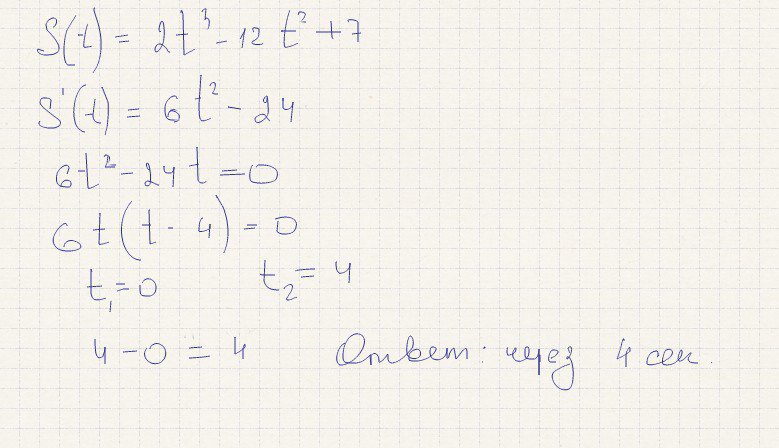 S(t) = 2t³ - 12t² + 7
S'(t) = 6t² - 24
6t² - 24t = 0
6t(t - 4) = 0
t₁ = 0 t₂ = 4
4 - 0 = 4 Ответ: через 4 сек.